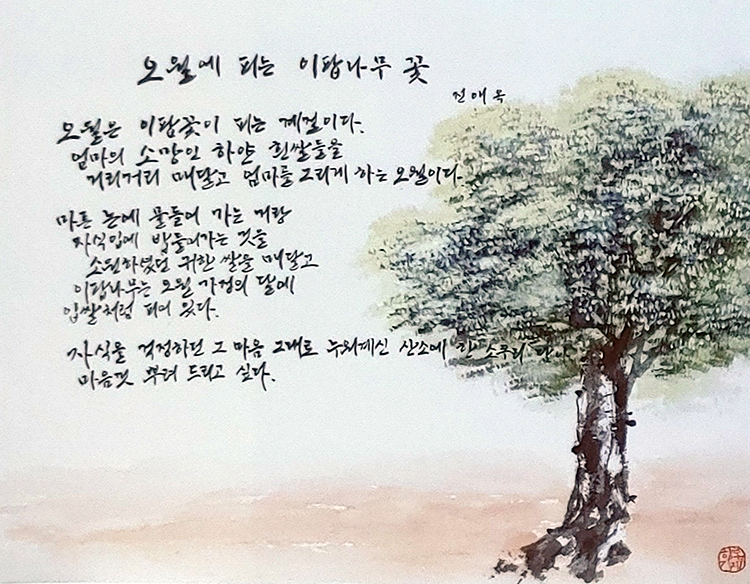 오월에 피는 이팝나무 꽃
전애옥
오월은 이팝꽃이 피는 계절이다.
엄마의 소망인 하얀 흰쌀들을
거리거리 매달고 엄마를 그리게 하는 오월이다.
마른 논에 물들어 가는 거랑
자식입에 밥들어가는 것을
소원하셨던 귀한 쌀을 매달고
이팝나무는 오월 가정의 달에
입쌀처럼 피어 있다.
자식을 걱정하던 그 마음 그대로 누워계신 산소에 한 소쿠리
마음껏 뿌려 드리고 싶다.